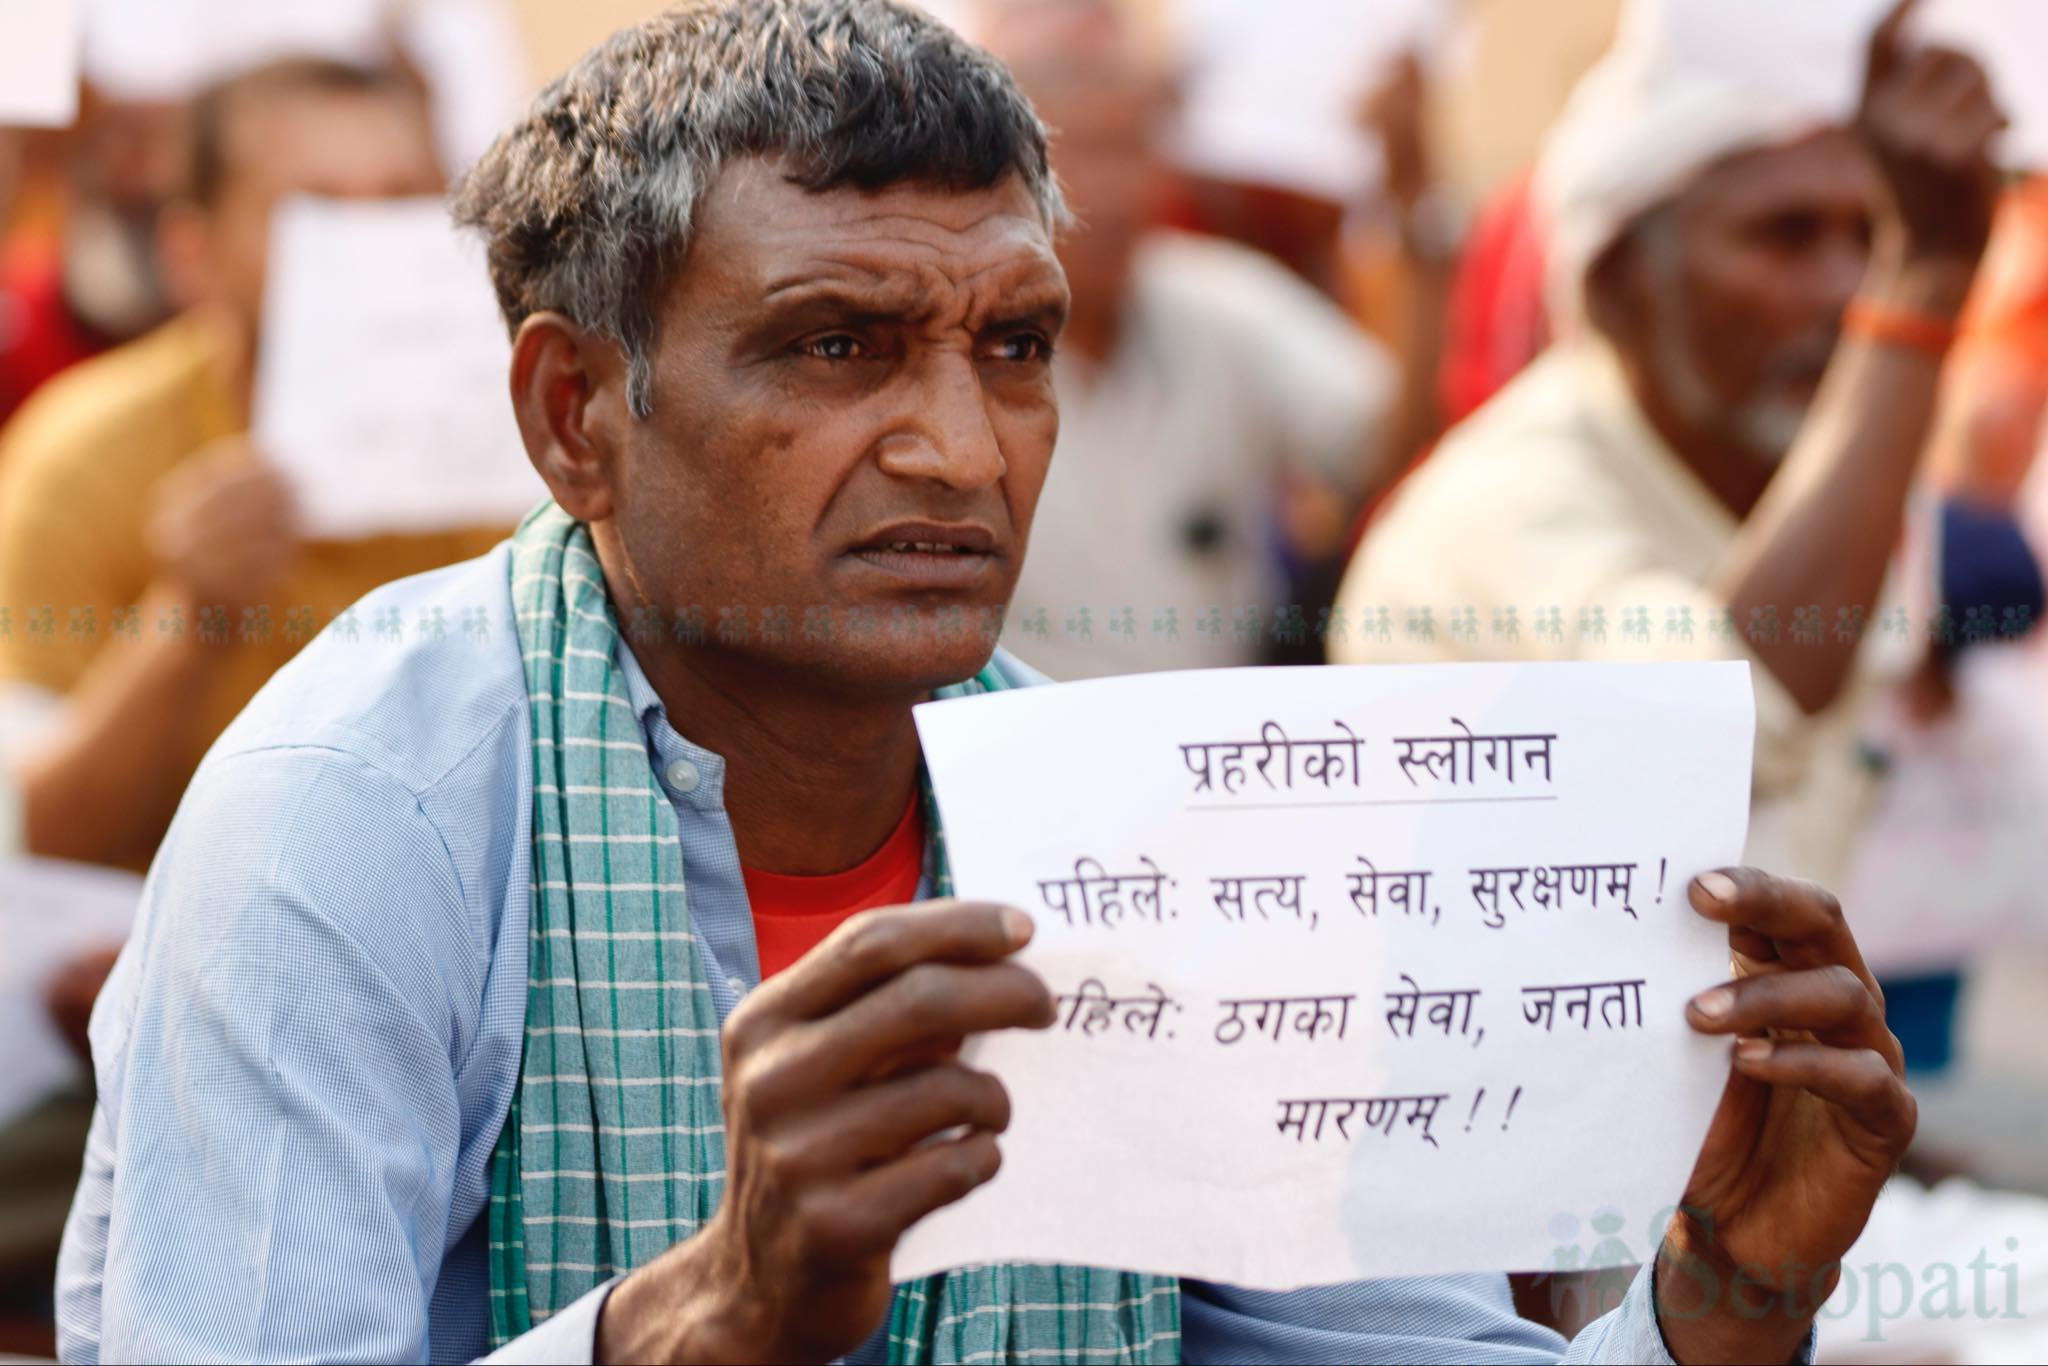 प्रहरीको स्लोगन
पहिले: सत्य, सेवा, सुरक्षणम् !
ठगका सेवा, जनता
मारणम् ! !
Setopati